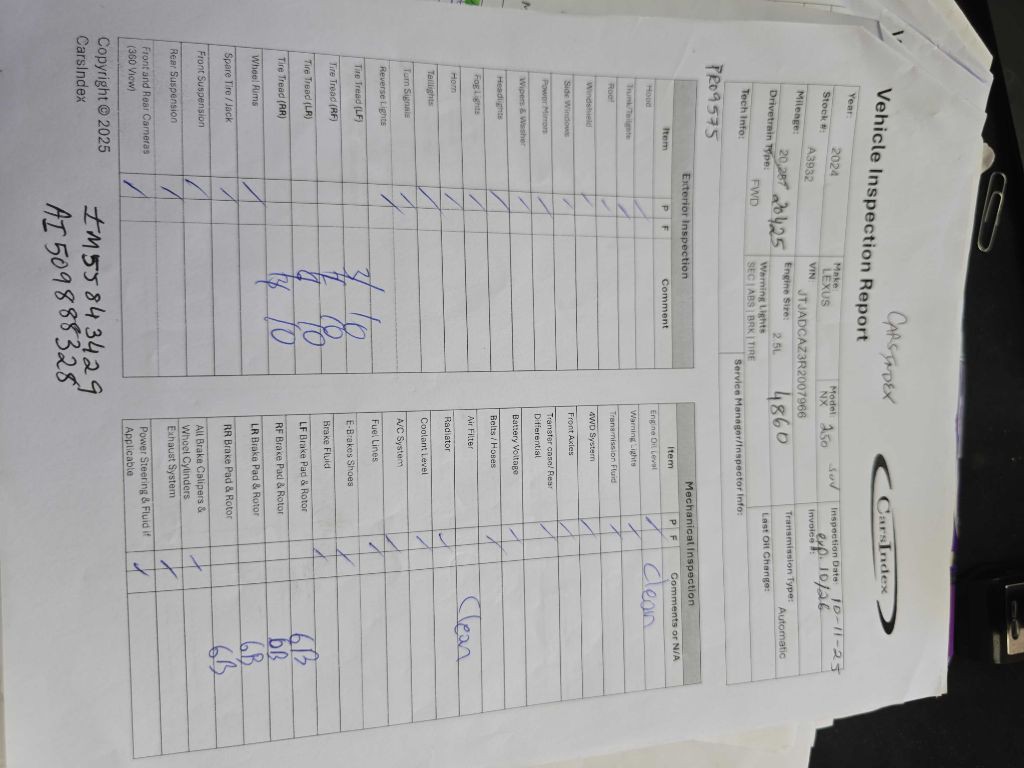 CARSINDEX
Vehicle Inspection Report
CARSINDEX
Year: 2024
Make: LEXUS
Model: NX 250 SUV
Inspection Date: 10-11-25
Stock #: A3932
VIN JTJADCAZ3R2007966
Invoice #:
exp. 10/26
Mileage: 20,287 20425
Engine Size: 2.5L 4860
Transmission Type: Automatic
Drivetrain Type: FWD
Warning Lights
SEC | ABS | BRK | TIRE
Last Oil Change:
Tech Info:
Service Manager/Inspector Info:
TR09575
Exterior Inspection
Item P F Comment
Hood
Trunk/Tailgate
Roof
Windshield
Side Windows
Power Mirrors
Wipers & Washer
Headlights
Fog Lights
Horn
Taillights
Turn Signals
Reverse Lights
Tire Tread (LF) 7/10
Tire Tread (RF) 10
Tire Tread (LR) 10
Tire Tread (RR) 10
Wheel Rims
Spare Tire / Jack
Front Suspension
Rear Suspension
Front and Rear Cameras
(360 View)
Mechanical Inspection
Item P F Comments or N/A
Engine Oil Level Clean
Warning Lights
Transmission Fluid
4WD System
Front Axles
Transfer case/ Rear
Differential
Battery Voltage
Belts / Hoses
Air Filter Clean
Radiator
Coolant Level
A/C System
Fuel Lines
E-Brakes Shoes
Brake Fluid
LF Brake Pad & Rotor 6B
RF Brake Pad & Rotor 6B
LR Brake Pad & Rotor 6B
RR Brake Pad & Rotor 6B
All Brake Calipers &
Wheel Cylinders
Exhaust System
Power Steering & Fluid if
Applicable
Copyright © 2025
CarsIndex
IM55843429
AI509888328